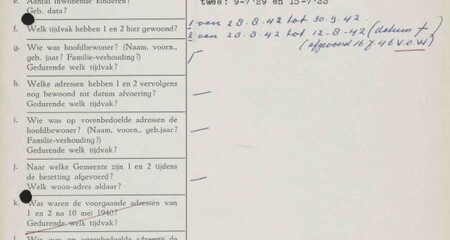 e. Aantal inwonende kinderen?
Geb. data?
twee: 9-7-'29 en 15-7-'33
f. Welk tijdvak hebben 1 en 2 hier gewoond?
1 van 28-8-42 tot 30-9-42.
2 van 28-8-42 tot 12-8-42 (datum +
(afgevoerd 16/7 46 V.O.W)
g. Wie was hoofdbewoner? (Naam, voorn.,
geb. jaar? Familie-verhouding?)
Gedurende welk tijdvak?
h. Welke adressen hebben 1 en 2 vervolgens
nog bewoond tot datum afvoering?
i. Wie was op vorenbedoelde adressen de
hoofdbewoner? (Naam, voorn., geb.jaar?
Familie-verhouding?)
Gedurende welk tijdvak?
j. Naar welke Gemeente zijn 1 en 2 tijdens
de bezetting afgevoerd?
Welk woon-adres aldaar?
k. Wat waren de voorgaande adressen van
1 en 2 na 10 mei 1940?
Gedurende welk tijdvak?
l. Wie was op vorenbedoelde adressen de